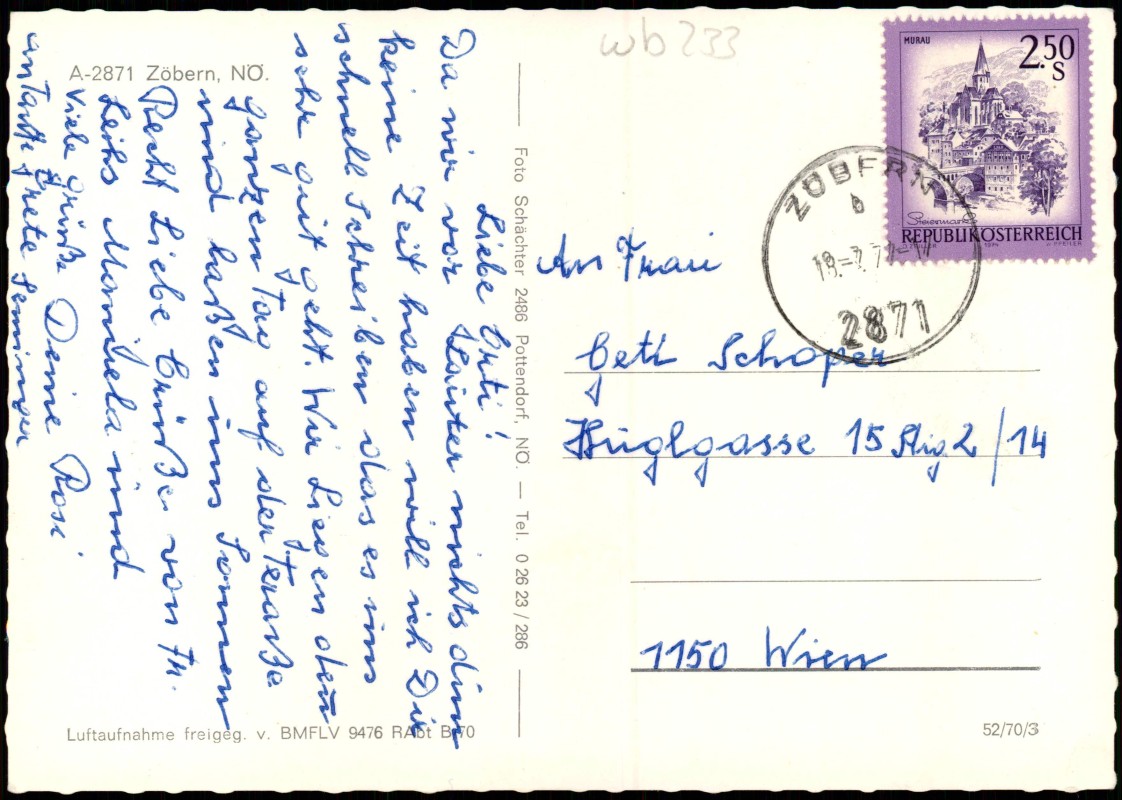 wb 233
A-2871 Zöbern, NÖ.
Liebe
Da wir vor Lauter nichts dun
keine Zeit haben will ich Dir
schnell schreiben das es uns
sehr gut geht. Wir Liegen den
ganzen Tag auf der Teraße
und laßen uns Sonnen
Recht Liebe Grüße von Fr.
Leihs Manuela und
Viele Grüße Deine Rosi
Tante Grete
Foto Schächter 2486 Pottendorf, NÖ. — Tel. 0 26 23 / 286
Luftaufnahme freigeg. v. BMFLV 9476 RAbt B/70
MURAU
2.50
S
Steiermark
REPUBLIK ÖSTERREICH
1974
ZÖBERN
b
2871
An Frau
Schoper
Huglgasse 15 Stig 2/14
1150 Wien
52/70/3